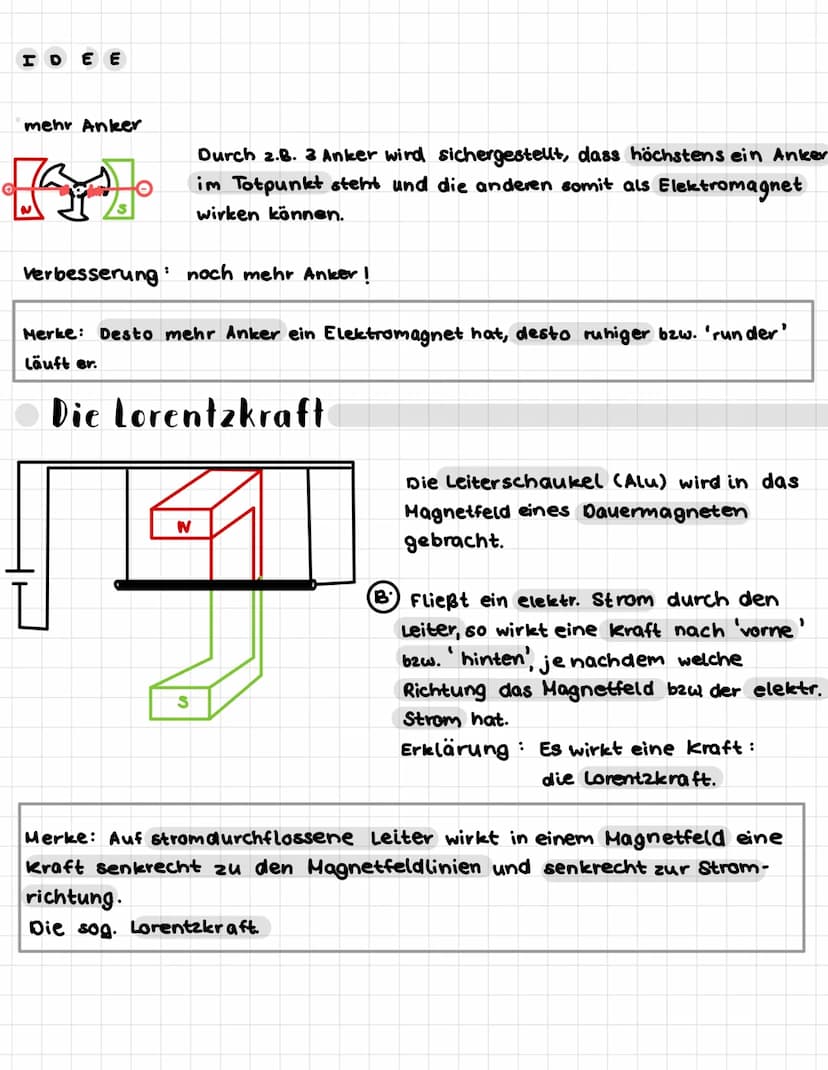 IDEE
mehr Anker
Durch z.B. 3 Anker wird sichergestellt, dass höchstens ein Anker
im Totpunkt steht und die anderen somit als Elektromagnet
wirken können.
N
S
Verbesserung: noch mehr Anker!
Merke: Desto mehr Anker ein Elektromagnet hat, desto ruhiger bzw. 'runder'
läuft er.
Die Lorentzkraft
Die Leiterschaukel (Alu) wird in das
Magnetfeld eines Dauermagneten
gebracht.
N
B:
Fließt ein elektr. Strom durch den
Leiter, so wirkt eine Kraft nach 'vorne'
bzw. 'hinten', je nachdem welche
Richtung das Magnetfeld bzw der elektr.
S
Strom hat.
Erklärung: Es wirkt eine Kraft:
die Lorentzkraft.
Merke: Auf stromdurchflossene Leiter wirkt in einem Magnetfeld eine
Kraft senkrecht zu den Magnetfeldlinien und senkrecht zur Strom-
richtung.
Die sog. Lorentzkraft.